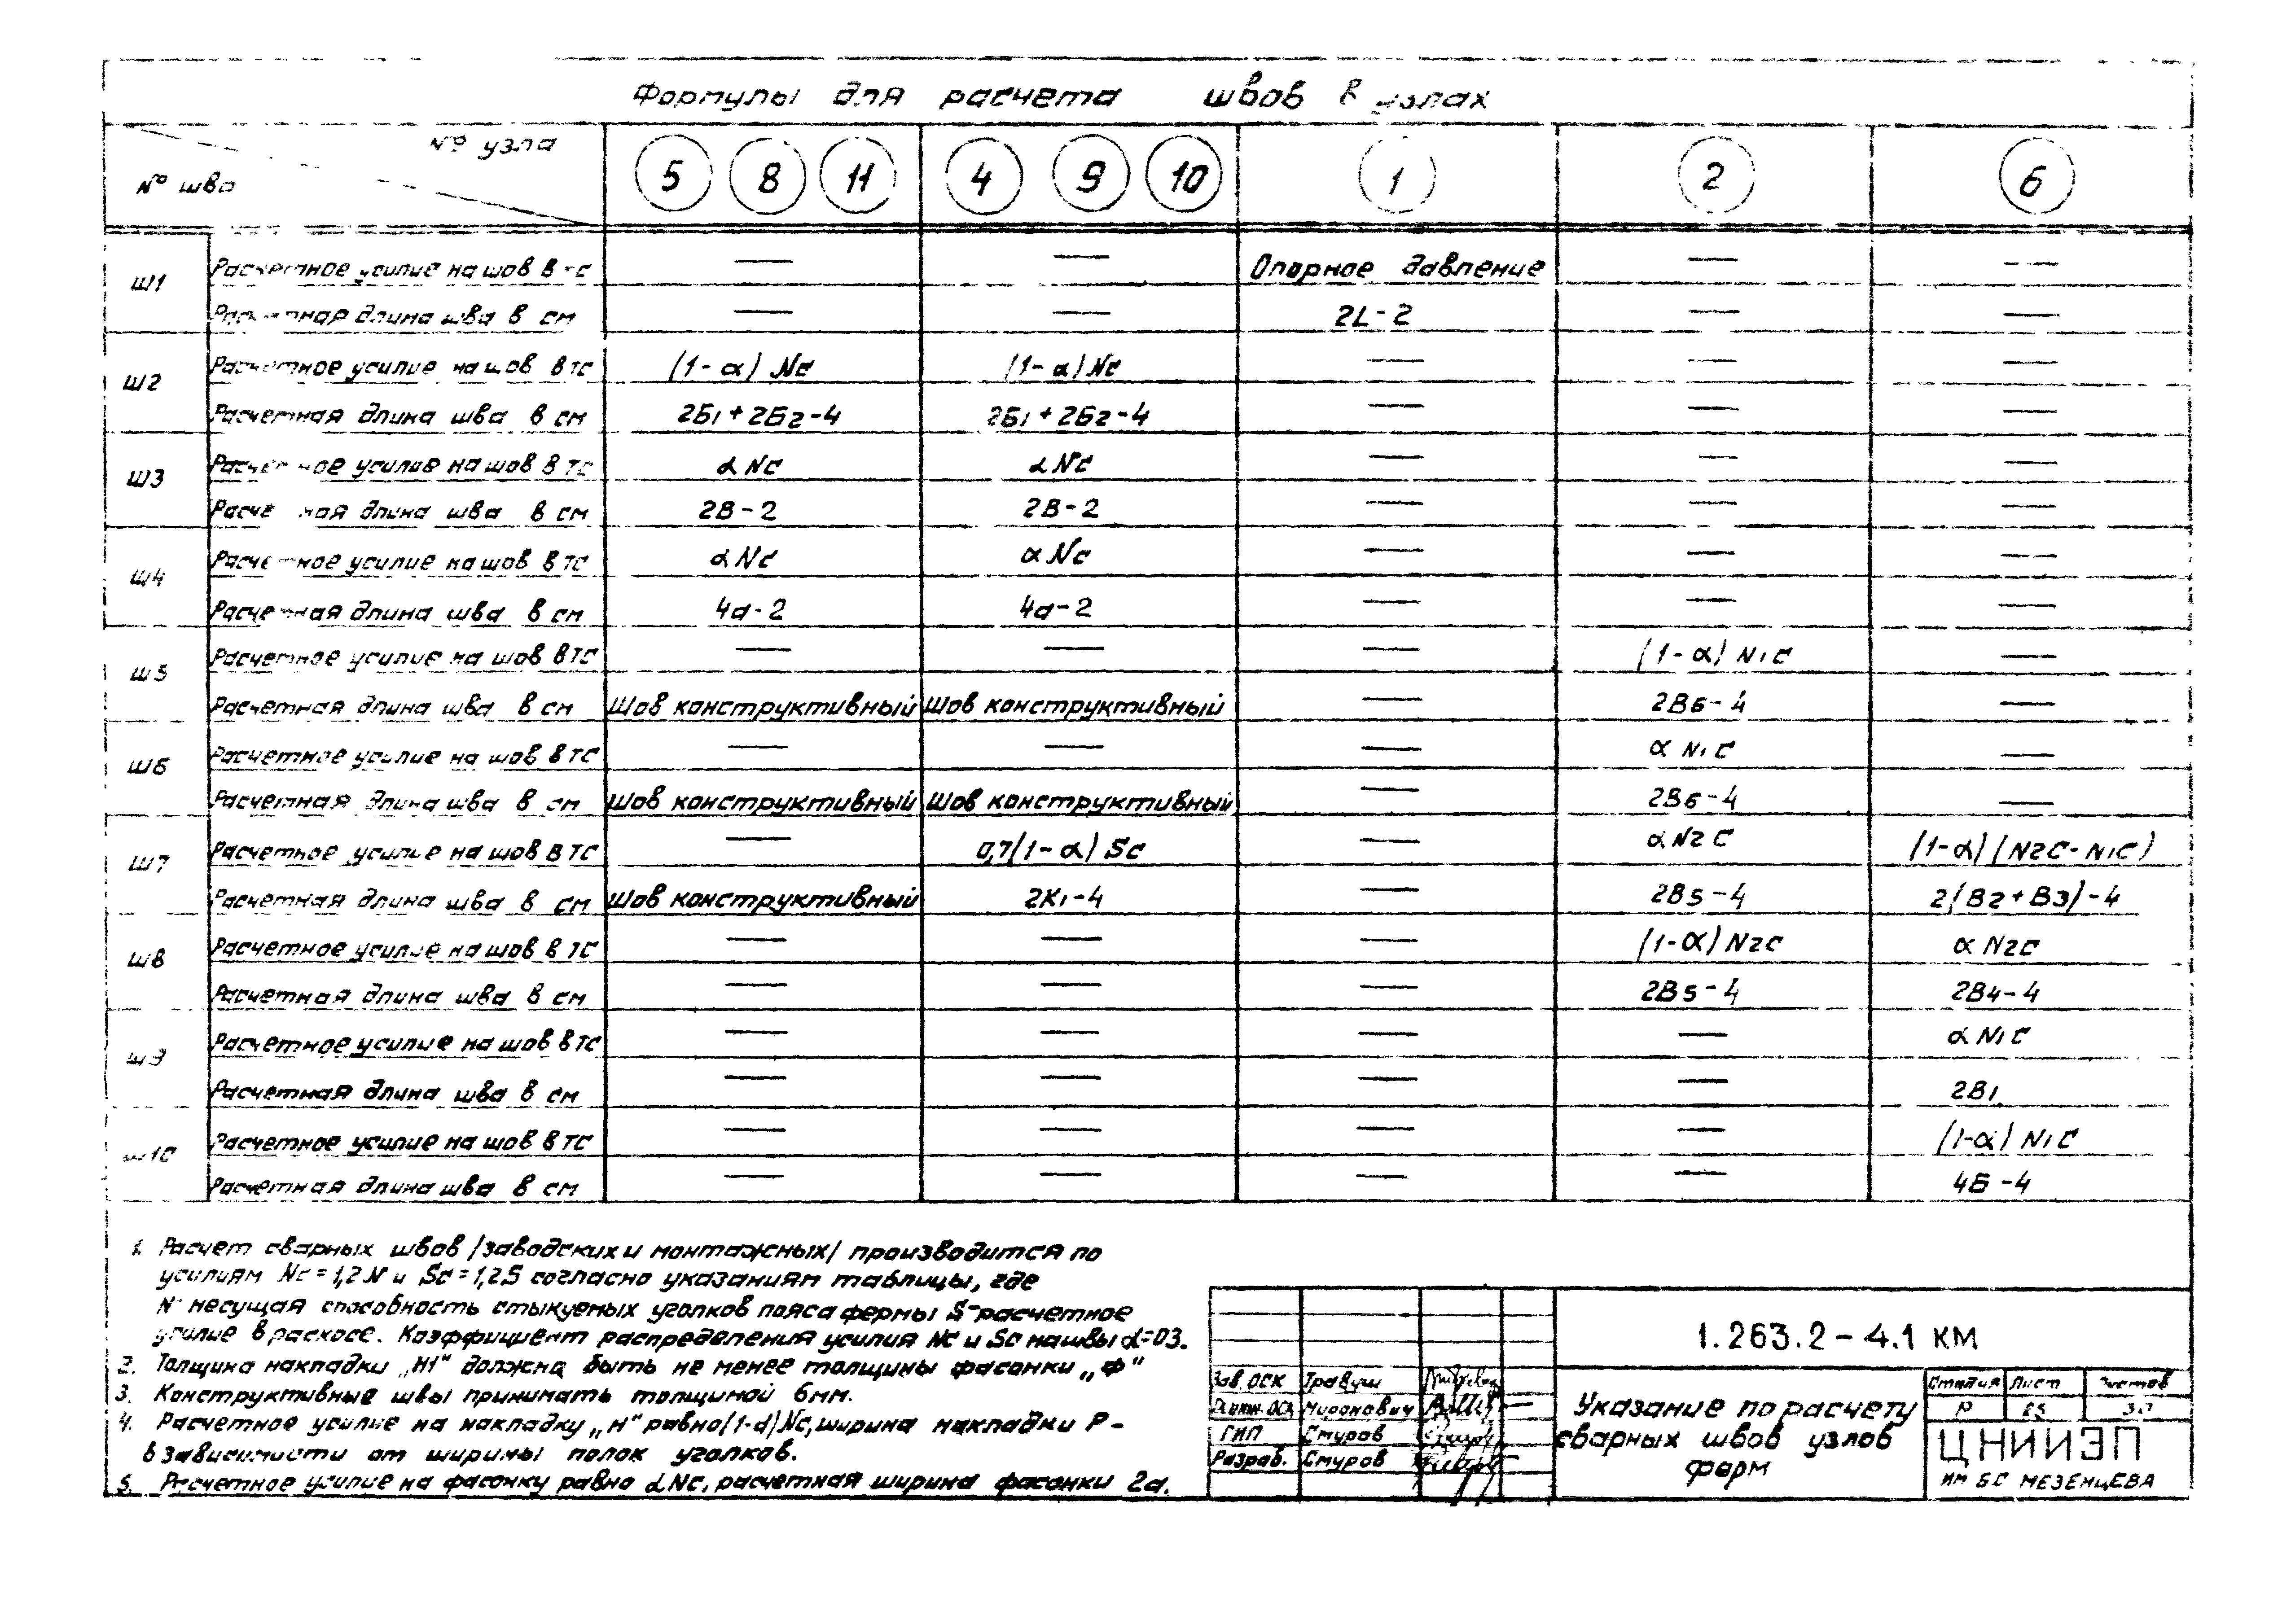 Формулы для расчета швов в узлах
№ узла
№ шва
5 8 11 4 9 10 1 2 6
Ш1 Расчетное усилие на шов в тс — — Опорное давление — —
Расчетная длина шва в см — — 2L-2 — —
Ш2 Расчетное усилие на шов в тс (1-α) Nc (1-α) Nc — — —
Расчетная длина шва в см 2Б1+2Б2-4 2Б1+2Б2-4 — — —
Ш3 Расчетное усилие на шов в тс αNc αNc — — —
Расчетная длина шва в см 2В-2 2В-2 — — —
Ш4 Расчетное усилие на шов в тс αNc αNc — — —
Расчетная длина шва в см 4а-2 4а-2 — — —
Ш5 Расчетное усилие на шов в тс — — — (1-α) N1C —
Расчетная длина шва в см Шов конструктивный Шов конструктивный — 2В6-4 —
Ш6 Расчетное усилие на шов в тс — — — α N1C —
Расчетная длина шва в см Шов конструктивный Шов конструктивный — 2В6-4 —
Ш7 Расчетное усилие на шов в тс — 0,7(1-α) Sc — αN2C (1-α)(N2C-N1C)
Расчетная длина шва в см Шов конструктивный 2К1-4 — 2В5-4 2(В2+В3)-4
Ш8 Расчетное усилие на шов в тс — — — (1-α) N2C α N2C
Расчетная длина шва в см — — — 2В5-4 2В4-4
Ш9 Расчетное усилие на шов в тс — — — — α N1C
Расчетная длина шва в см — — — — 2В1
Ш10 Расчетное усилие на шов в тс — — — — (1-α) N1C
Расчетная длина шва в см — — — — 4Б-4
1. Расчет сварных швов /заводских и монтажных/ производится по
усилиям Nc=1,2N и Sc=1,2S согласно указаниям таблицы, где
N-несущая способность стыкуемых уголков пояса фермы S-расчетное
усилие в раскосе. Коэффициент распределения усилия Nc и Sc на швы α=03.
2. Толщина накладки „Н1" должна быть не менее толщины фасонки „Ф"
3. Конструктивные швы принимать толщиной 6мм.
4. Расчетное усилие на накладку „Н" равно (1-α)Nc, ширина накладки Р-
в зависимости от ширины полок уголков.
5. Расчетное усилие на фасонку равно αNc, расчетная ширина фасонки 2а.
1.263.2-4.1 КМ
Зав. ОСК Травуш
Гл.инж. ОСК Миронович
ГИП Смуров
Разраб. Смуров
Указание по расчету
сварных швов узлов
ферм
Стадия Лист Листов
Р
ЦНИИЭП
ИМ БС МЕЗЕНЦЕВА